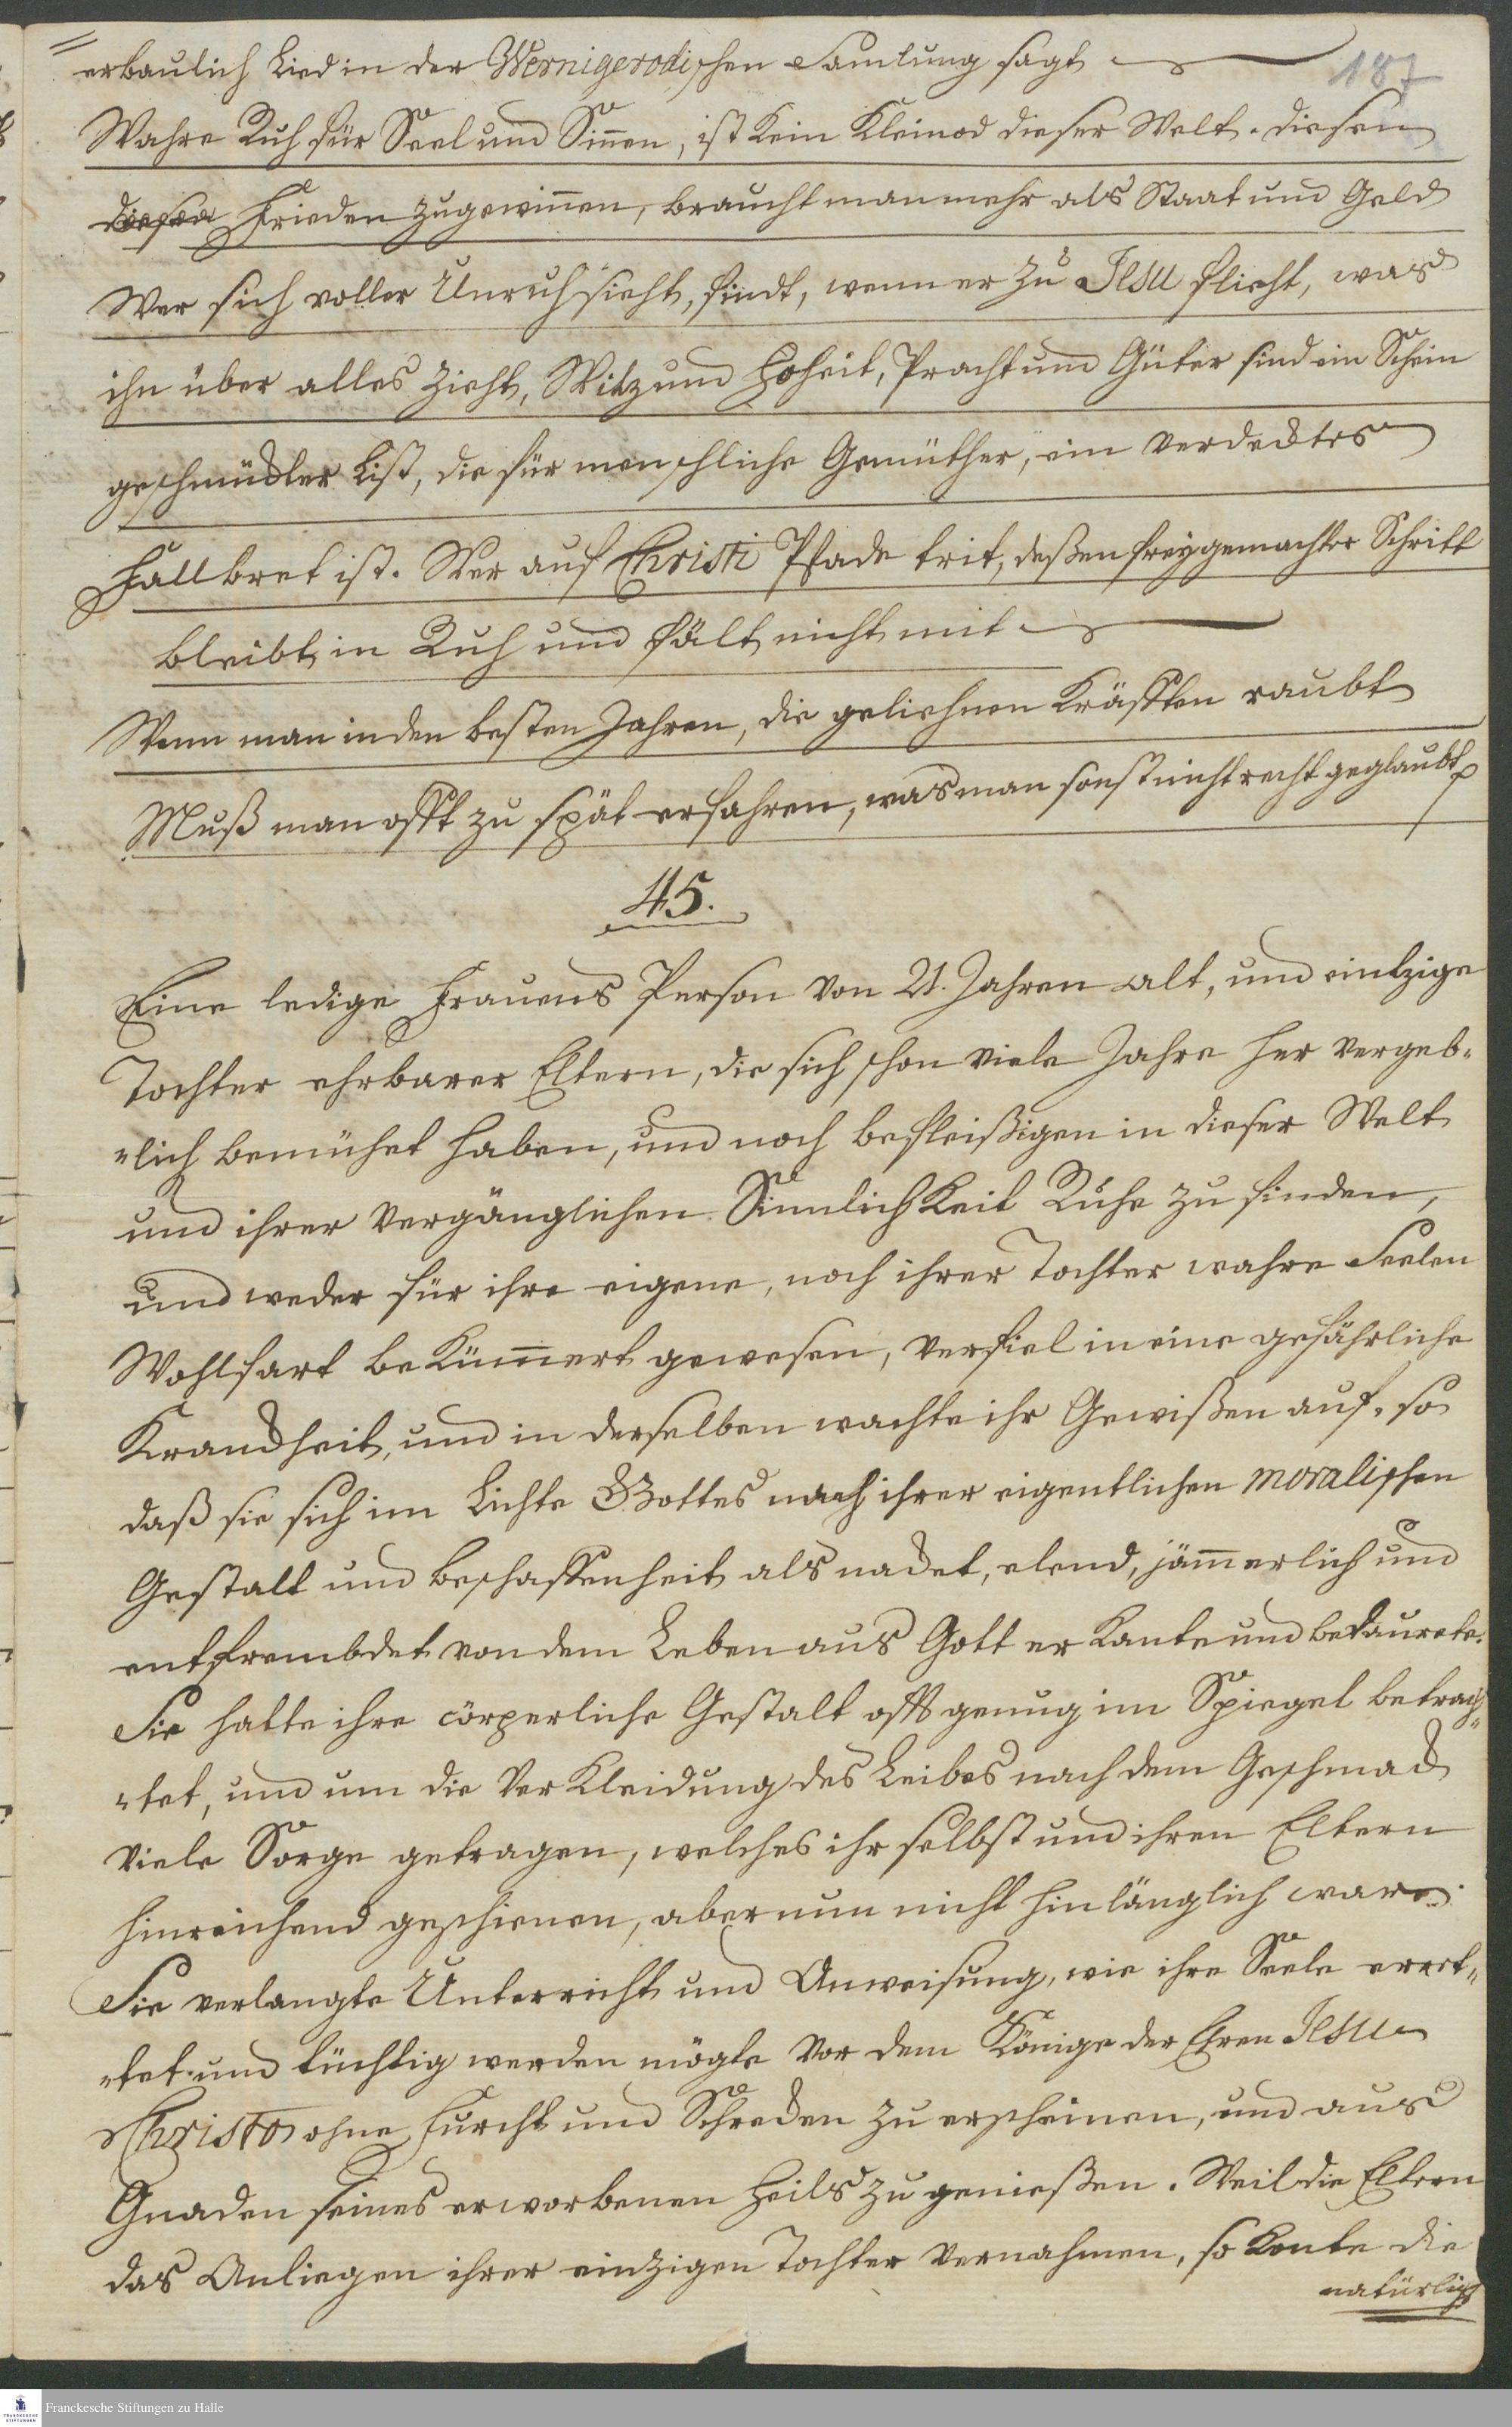 187
erbaulich Lied in der Wernigerodischen Samlung sagt
Wahre Ruh für Seel und Sinnen, ist kein Kleinod dieser Welt. diesen
diesen Frieden zugewinnen, braucht man mehr als Staat und Geld
Wer sich voller Unruh sieht, findt, wenn er zu JEsu flieht, was
ihn über alles zieht, Witz und Hoheit, Pracht und Güter sind ein Schein
geschmückter List, die für menschliche Gemüther, ein verdecktes
Fallbret ist. Wer auf Christi Pfade trit, deßen freygemachter Schritt
bleibt in Ruh und fält nicht mit
Wenn man in den besten Jahren, die geliehnen Kräfften raubt
Muß man offt zu spät erfahren, was man sonst nicht recht geglaubt
45.
Eine ledige Frauens Person von 21. Jahren alt, und eintzige
Tochter ehrbarer Eltern, die sich schon viele Jahre her vergeb-
-lich bemühet haben, und noch befleißigen in dieser Welt
und ihrer vergänglichen Sinnlichkeit Ruhe zu finden,
und weder für ihre eigene, noch ihrer Tochter wahre Seelen
Wohlfart bekümmert gewesen, verfiel in eine gefährliche
Kranckheit, und in derselben wachte ihr Gewißen auf, so
daß sie sich im Lichte GOttes nach ihrer eigentlichen moralischen
Gestalt und beschaffenheit als nacket, elend, jämmerlich und
entfrembdet von dem Leben aus Gott erkante und bedaurete.
Sie hatte ihre cörperliche Gestalt offt genug im Spiegel betrach-
-tet, und um die Verkleidung des Leibes nach dem Geschmack
viele Sorge getragen, welches ihr selbst und ihren Eltern
hinreichend geschienen, aber nun nicht hinlänglich ware.
Sie verlangte Unterricht und Anweisung, wie ihre Seele erret-
-tet und tüchtig werden mögte vor dem Könige der Ehren JEsu
Christo ohne Furcht und Schrecken zu erscheinen, und aus
Gnaden seines erworbenen Heils zu genießen. Weil die Eltern
das Anliegen ihrer einzigen Tochter vernahmen, so konte die
natürlich
Franckesche Stiftungen zu Halle